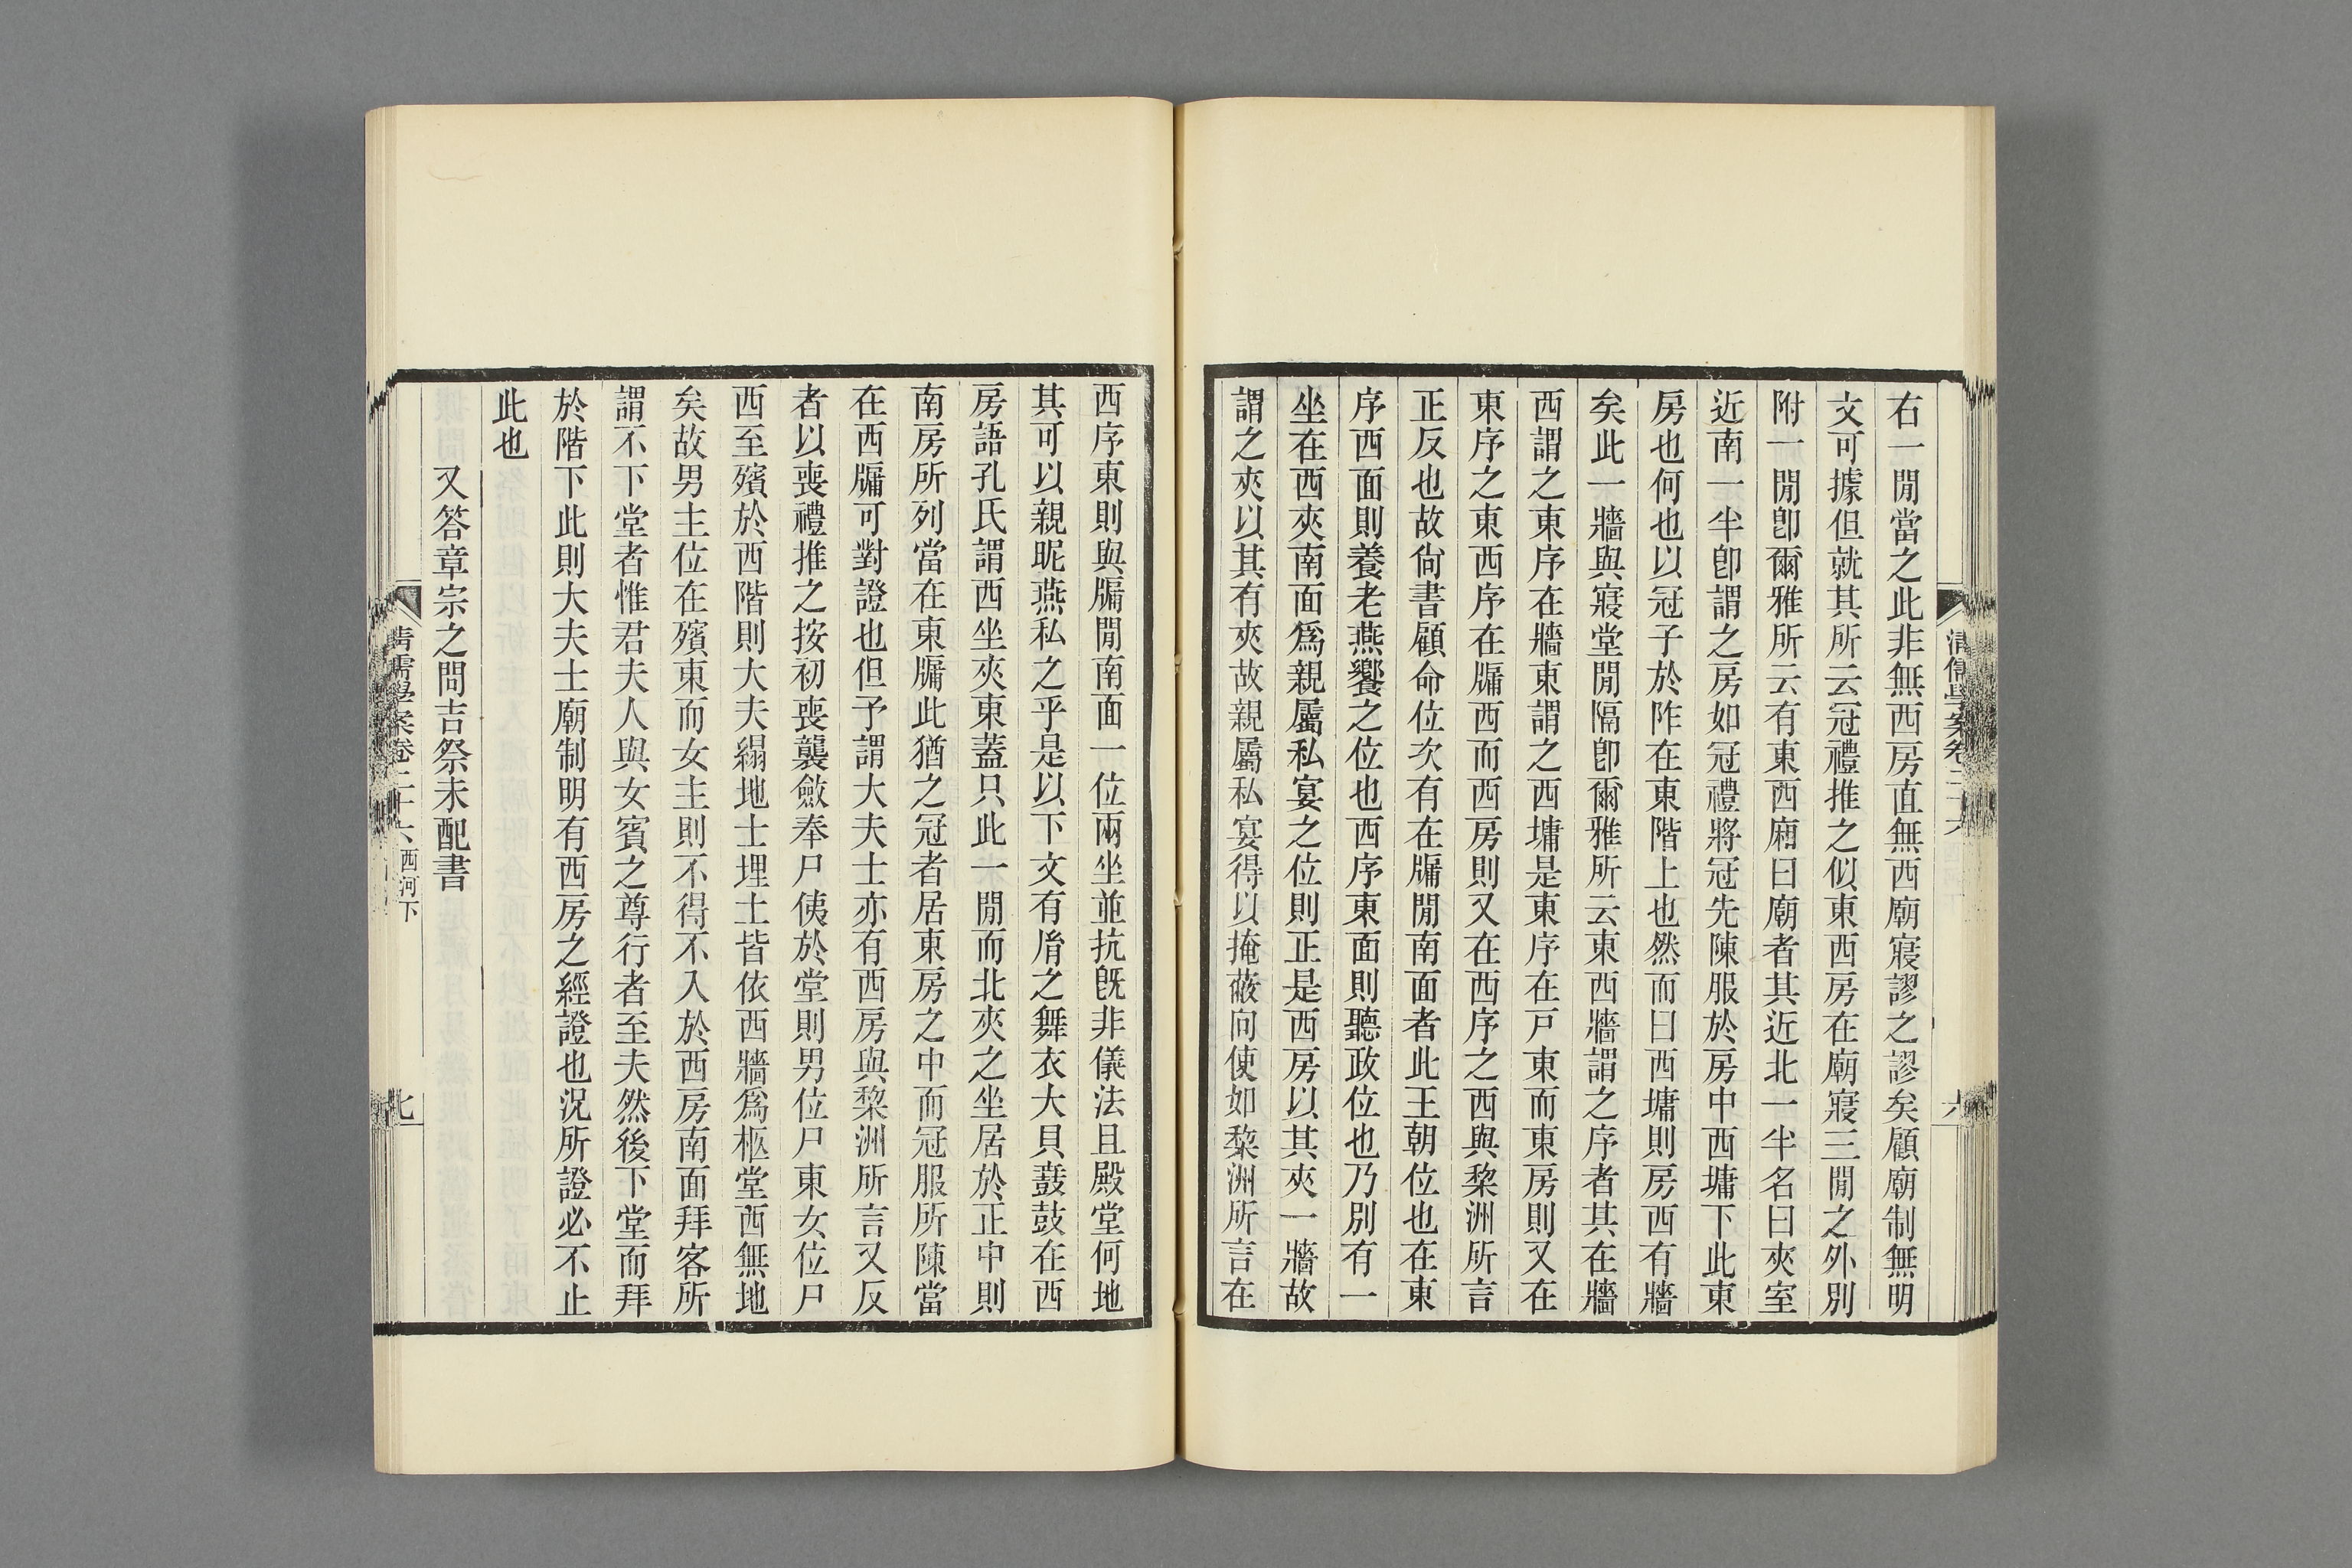 右一閒當之此非無西房直無西廟寢謬之謬矣顧廟制無明
文可據但就其所云冠禮推之似東西房在廟寢三閒之外別
附一閒卽爾雅所云有東西廂曰廟者其近北一半名曰夾室
近南一半卽謂之房如冠禮將冠先陳服於房中西墉下此東
房也何也以冠子於阼在東階上也然而曰西墉則房西有牆
矣此一牆與寢堂閒隔卽爾雅所云東西牆謂之序者其在牆
西謂之東序在牆東謂之西墉是東序在戸東而東房則又在
東序之東西序在牖西而西房則又在西序之西與黎洲所言
正反也故尙書顧命位次有在牖閒南面者此王朝位也在東
序西面則養老燕饗之位也西序東面則聽政位也乃別有一
坐在西夾南面爲親屬私宴之位則正是西房以其夾一牆故
謂之夾以其有夾故親屬私宴得以掩蔽向使如黎洲所言在
清儒學案卷二十六
六
西序東則與牖閒南面一位兩坐並抗旣非儀法且殿堂何地
其可以親昵燕私之乎是以下文有胤之舞衣大貝鼖鼓在西
房語孔氏謂西坐夾東蓋只此一閒而北夾之坐居於正中則
南房所列當在東牖此猶之冠者居東房之中而冠服所陳當
在西牖可對證也但予謂大夫士亦有西房與黎洲所言又反
者以喪禮推之按初喪襲斂奉尸侇於堂則男位尸東女位尸
西至殯於西階則大夫緆地士埋土皆依西牆爲柩堂西無地
矣故男主位在殯東而女主則不得不入於西房南面拜客所
謂不下堂者惟君夫人與女賓之尊行者至夫然後下堂而拜
於階下此則大夫士廟制明有西房之經證也況所證必不止
此也
又答章宗之問吉祭未配書
清儒學案卷二十六 西河下
七